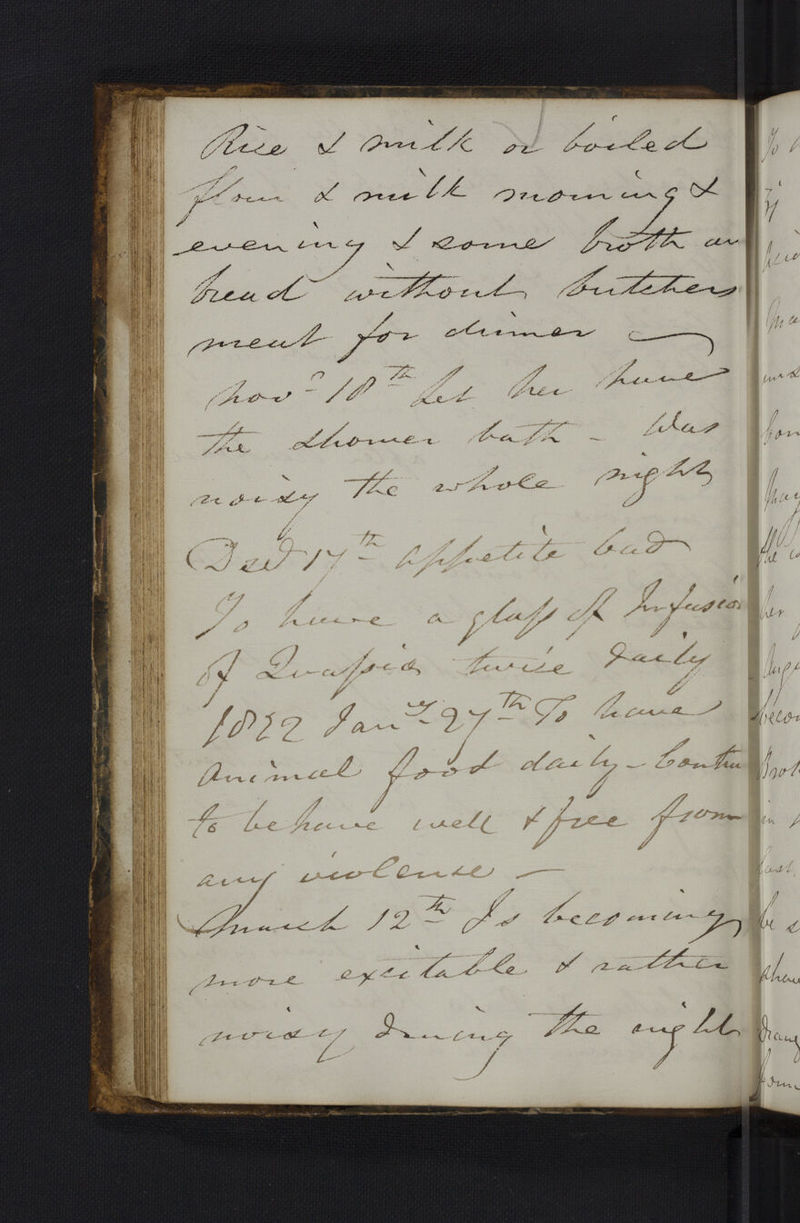 Rice & milk or boiled
flour & milk morning &
evening & some broth an
bread without butchers
meat for dinner —
Novr 18th Let her have
the shower bath - Was
noisy the whole night
Decr 17th appetite bad
To have a glass of Infusion
of Quassia twice daily
1822 Jany 27th To have
Animal food daily - Continu
to behave well & free from
any violense —
March 12th Is becoming
more excitable & rather
noisy during the night